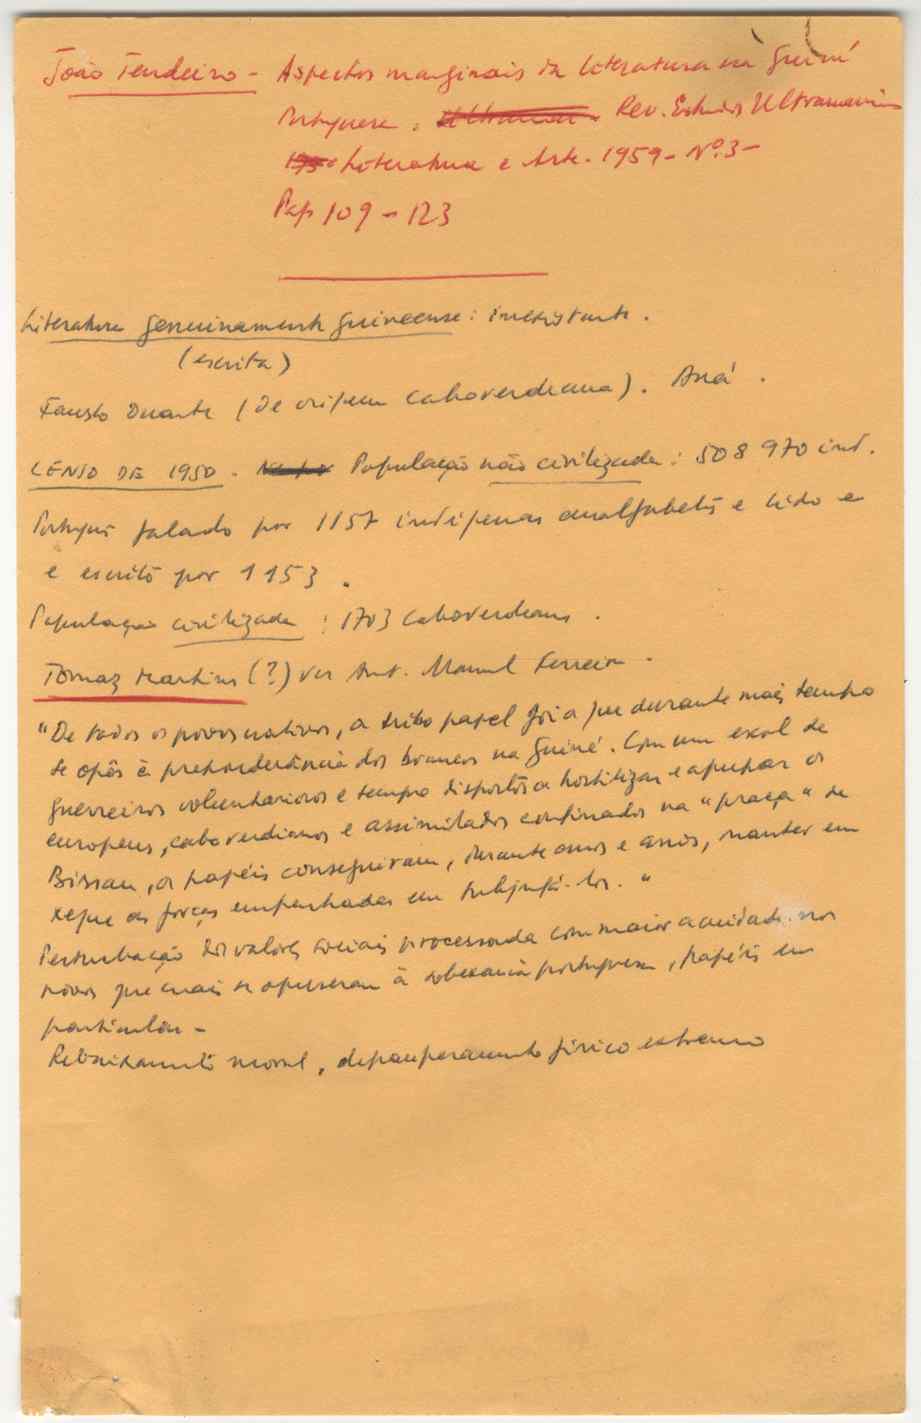 João Tendeiro - Aspectos marginais da literatura na Guiné
Portuguesa. Rev. Estudos Ultramarinos
Literatura e Arte. 1959 - Nº. 3 -
Pag 109 - 123
Literatura genuinamente guineense: inexistente.
(escrita)
Fausto Duarte (de origem caboverdeana). Auá.
CENSO DE 1950. População não civilizada: 508 970 ind.
Português falado por 1157 indígenas analfabetos e lido e
e escrito por 1153.
População civilizada: 1703 caboverdeanos.
Tomaz Martins (?) ver Ant. Manuel Ferreira.
"De todos os povos nativos, a tribo papel foi a que durante mais tempo
se opôs à preponderância dos brancos na Guiné. Com um escol de
guerreiros voluntariosos e sempre dispostos a hostilizar e apupar os
europeus, caboverdianos e assimilados confinados na "praça" de
Bissau, os papéis conseguiram, durante anos e anos, manter em
xeque as forças empenhadas em subjugá-los."
Perturbação dos valores sociais processada com maior acuidade nos
povos que mais se opuseram à soberania portuguesa, papéis em
particular -
Rebaixamento moral, depauperamento físico extremo